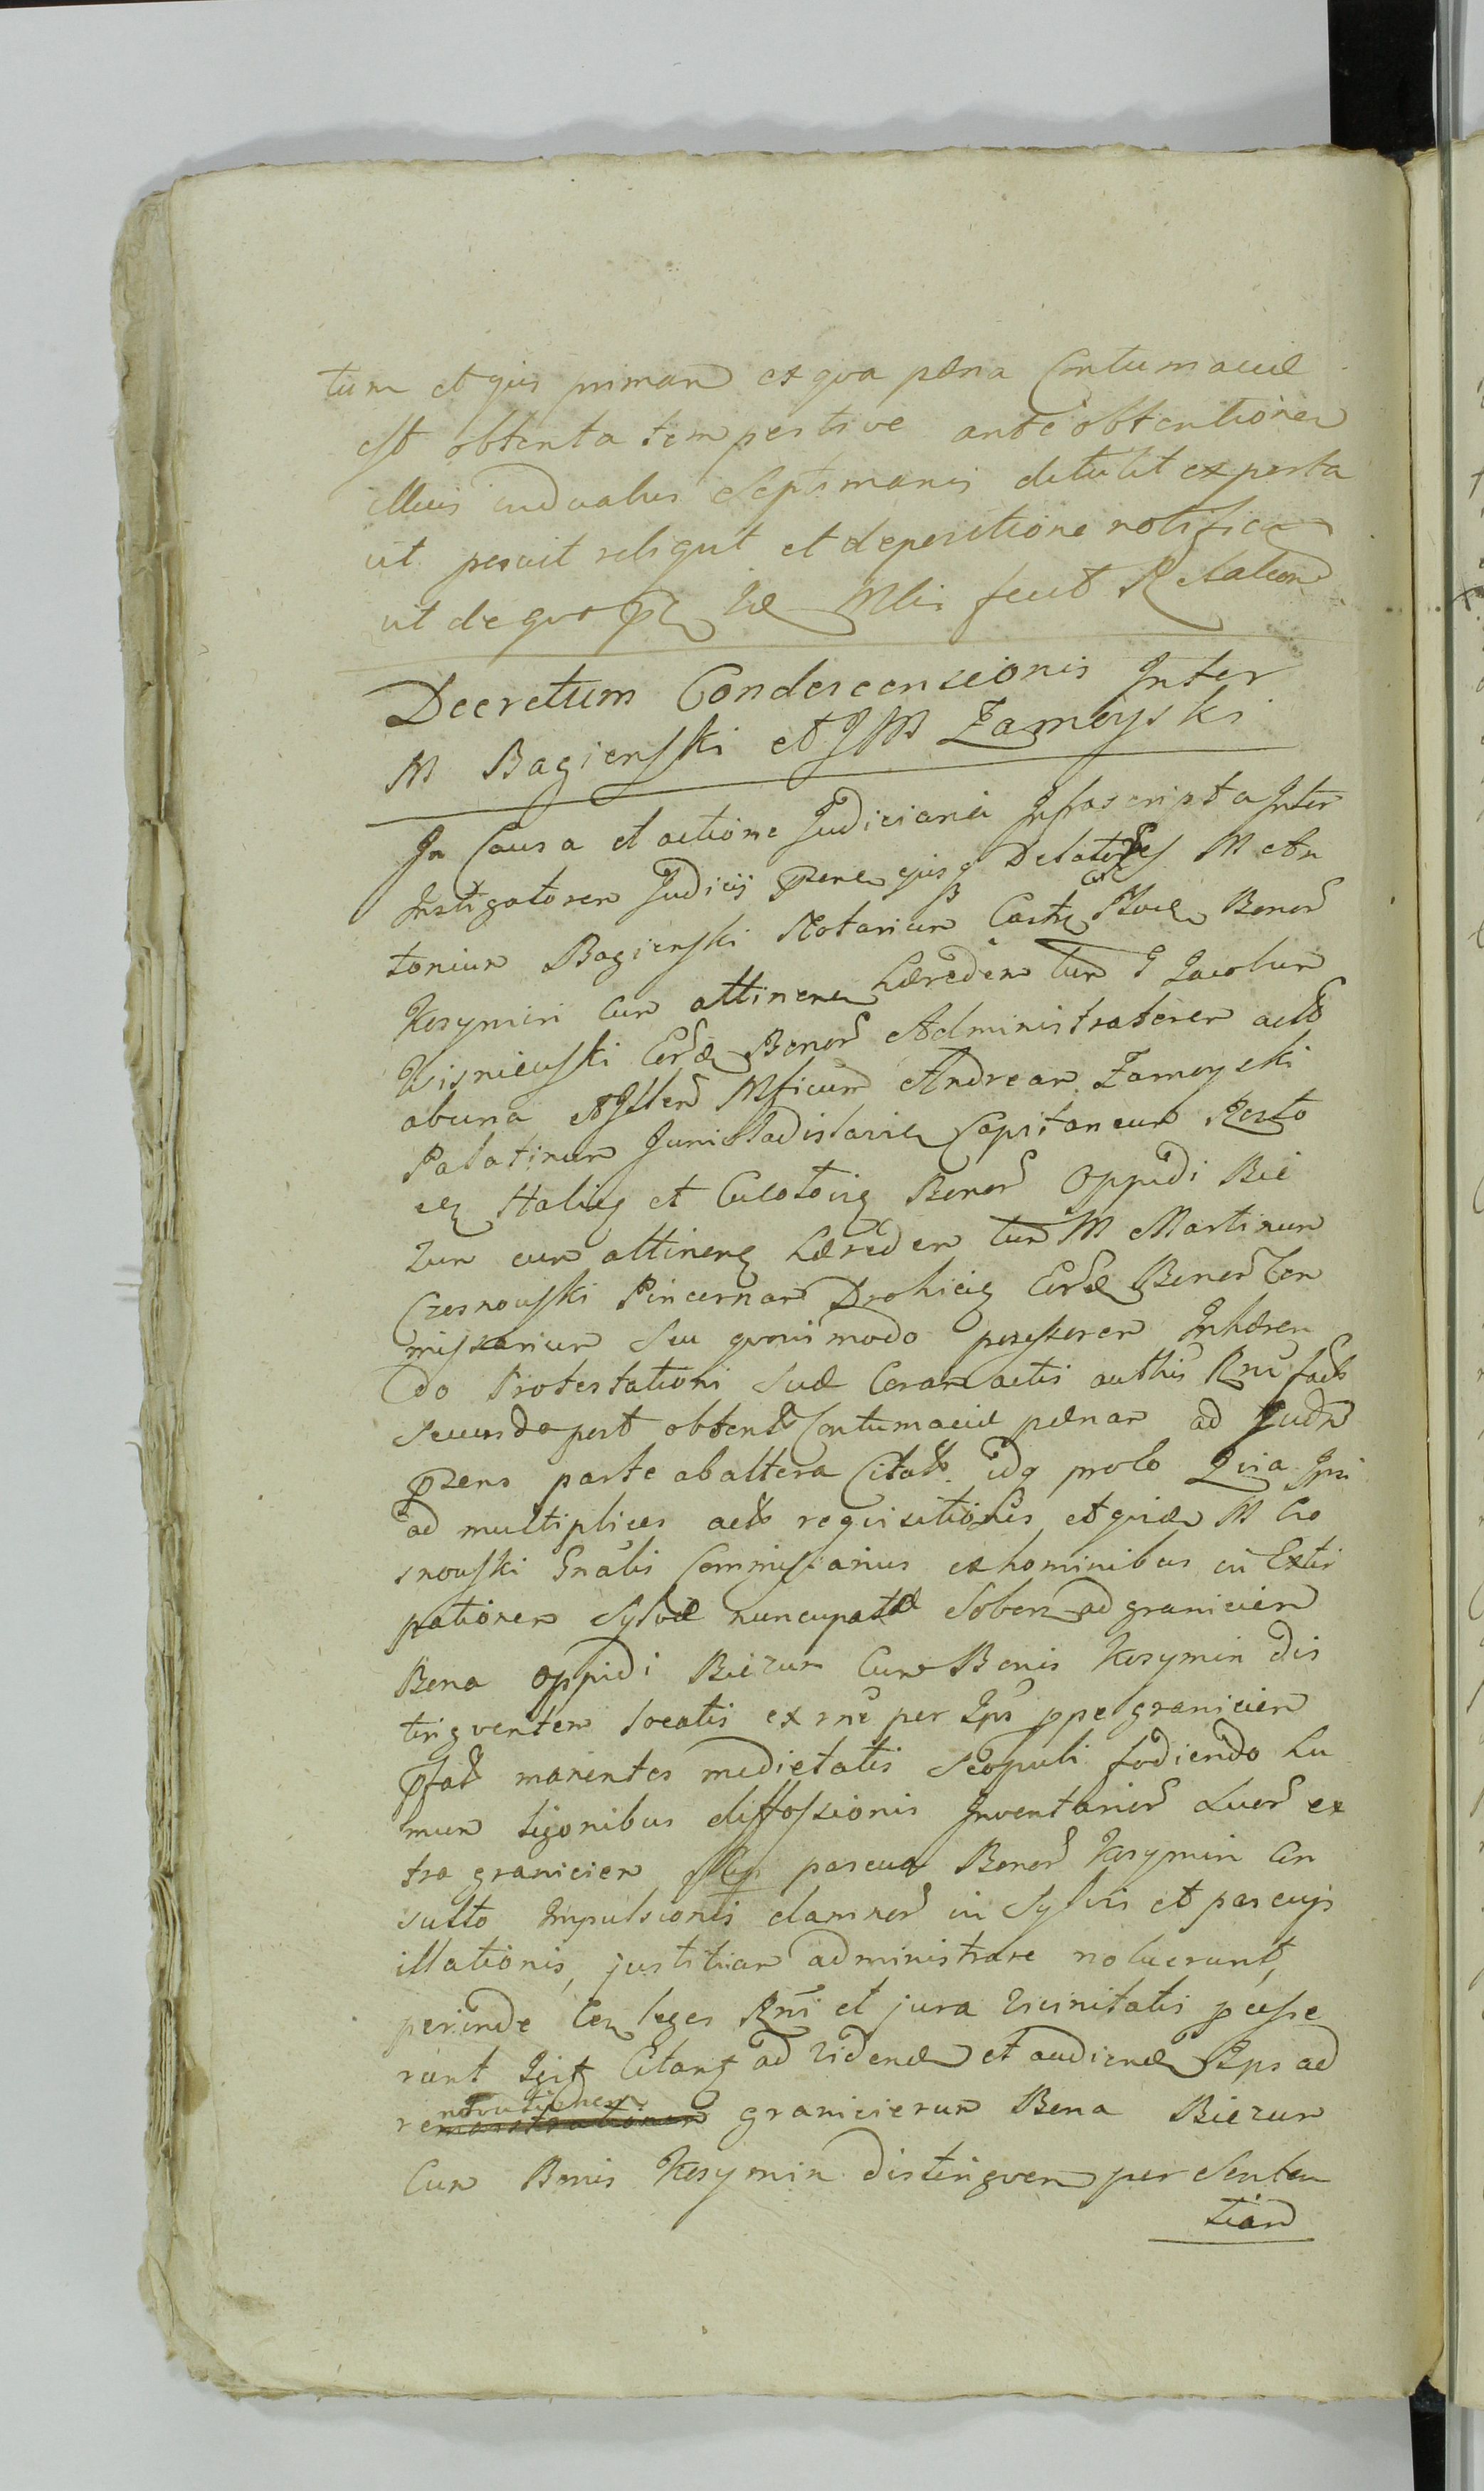 tum et ejus priman ex qva pæna Contumaciæ
est obtenta tempestive ante obtentionem
illius induabus Septimanis detulit exposta
ut posuit reliqvit et depositione notifica
ut de qvo hæ Mlis fecit Relation
Decretum Condescensionis Inter
M Bagienski et JM Zamoyski
In Causa et actione Judiciaria Infrascripta Inter
Instigatorem Judicij ejusq Delatores M An
tonium Bagienski Notarium Castr Bonor
Kosymin Cum attinen hæredem tum G Jacobum
Wisniewski Eord Bonor Administratorem act
abuna et Illem Mficum Andream Zamoyski
Palatinum Junivladislavien Capitaneum Rosto
cen Halicz et Bonor Oppidi Bie
zun cum attinen hæredem tum M Martinum
Czosnowski Pincernam Drohicien Eord Bonor Com
missarium Seu qvovismodo possessorem Inhæren
do Protestationi Suæ Coram actis authis Rni fact
Secundo post obtent Contumaciæ pænam ad Judm
parte abaltera Citat idq prolo Qvia Ipsi
ad multiplices act reqvisitiones et qvidem M Czo
snowski Gnalis Commissarius exhominibus in Extir
pationem Sylvæ nuncupatæ Sober ad granicien
Bona oppidi Biezun Cum Bonis Kosymin dis
tingventem locatis ex rne per Ips ppe granicien
pfat manentes medietatis Scopuli fodiendo hu
mum ligonibus diffossionis Inventarior Suor ex
tra granicien pascua Bonor Kosymin Con
sulto Impulsionis damnor in Sylvis et pascuis
illationis, justitiam administrare noluerunt,
perinde leges Rni et jura vicinitatis
runt Igit Citant ad vidend et audiend Ips ad
renovationem granicierum Bona Biezun
Cum Bonis Kosymin distingven per Senten
tiam